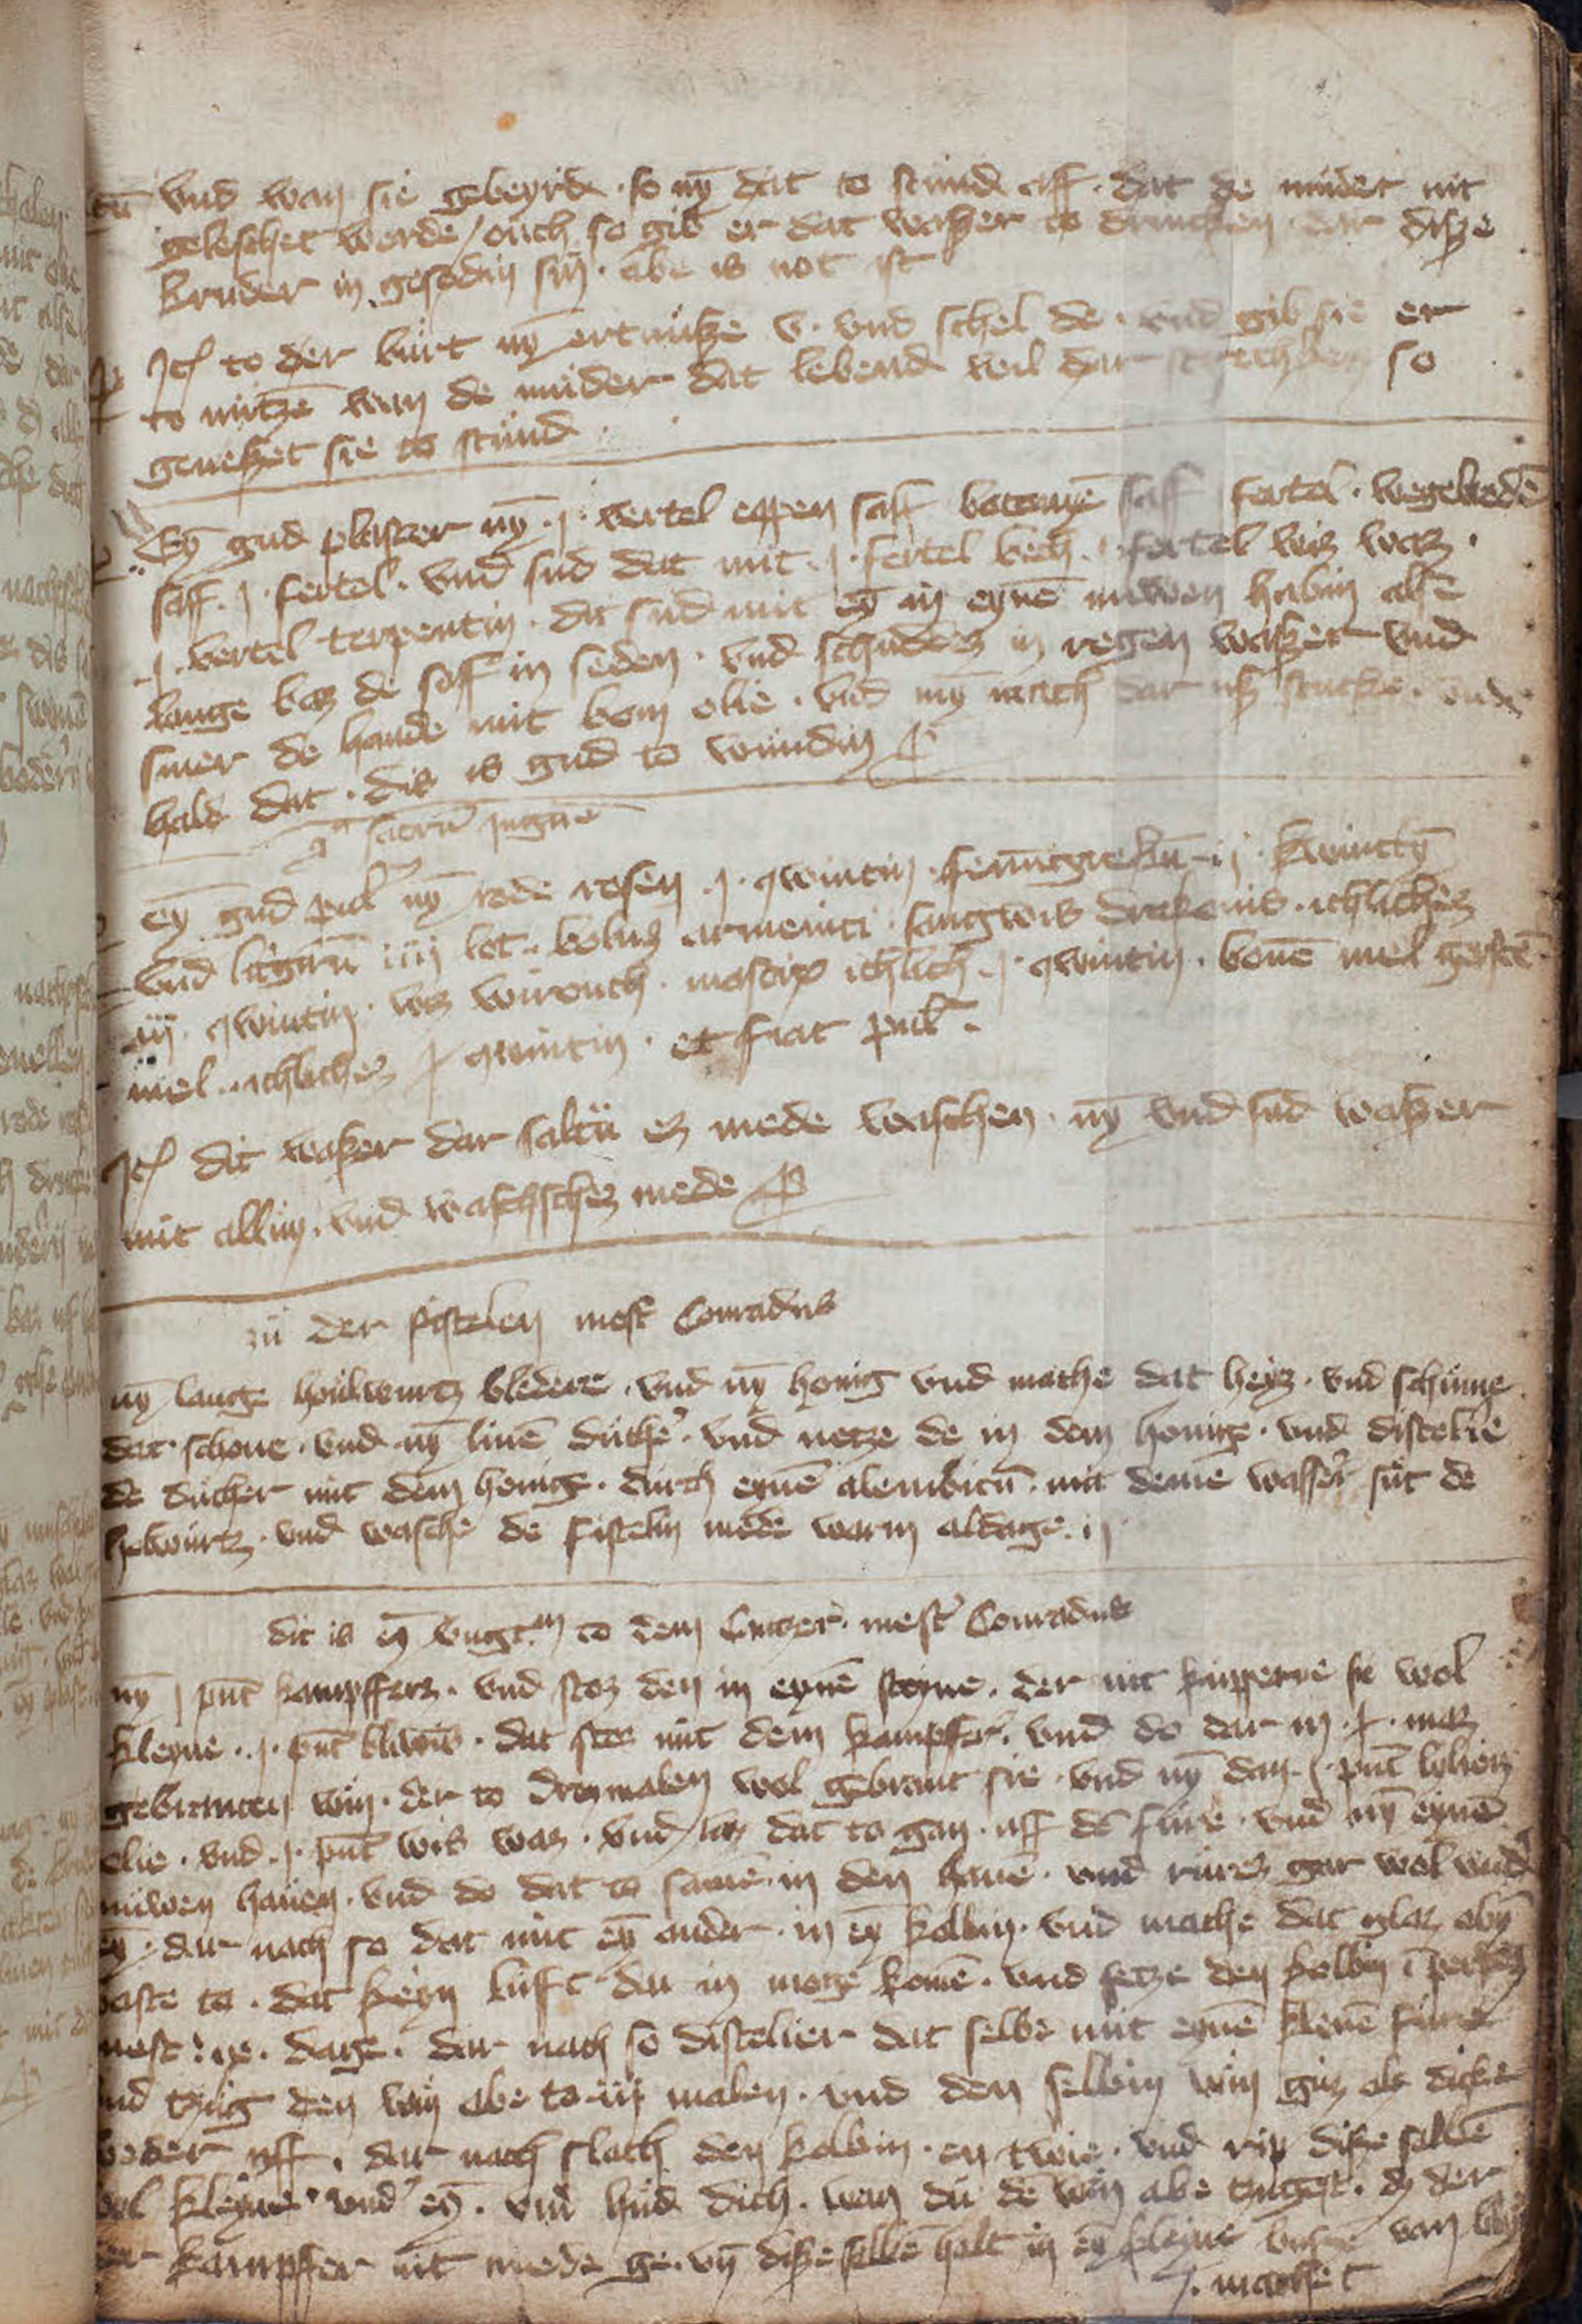 vnd wan sie gebeyrde · so nȳ dat to stund aff · dat de muder nit
geleschet werde / ouch so gib er dat waßer to drincken dar diße
kruder in gesodin sin · abe is not ist
Itē to der burt nȳ ertnüße v · vnd schel de · vnd gib sie er
to nutzē wan de muder dat lebend wil dar so
geneßet sie to stund
Eȳ gud plaster nȳ · j · vertel eppen saff saff fertel · wegebredē
saff · j · fertel · vnd sud dat mit · j · fertel bech · fertel wis was ·
j · vertel terpentin · dit sud mit eȳ in eynē nuwen habin alse
lange bas de saff in seden · vnd schudes in regen waßer vnd
smer de hande mit bom olie · vnd nȳ mach dar uß stucke · vnde
hald dat · dis is gud to wundin
eȳ gud pulv̄ nȳ rode rosen · j · qwintin · fenugrekū · ij · kwintȳ
vnd iiij lot · bolus armenici · sangwis drakonis · ichliches
iij · qwintin · wis wirouch · mastix ichlich · j · qwintin · bonē mel gerstē
mel · ichliches qwintin · et fiat pulv̄ ·
Itē dit waßer dar saltu es mede waschen · nȳ vnd sud waßer
mit allun · vnd waschsches mede
zu der fistelen mest Conradus
nȳ lange houlwurtz bledere · vnd nȳ honig vnd mache dat heys · vnd schume
dat schone · vnd nȳ linē ducher · vnd netze de in dem honige · vnd distelie
de ducher mit dem honige · durch eynē alembicū · mit deme wasser sut de
holwurtz · vnd wasche de fistelin mede warm aldage · ij
dit is eȳ vngtm to dem Cancer · mest Conradus
nȳ j punt kampffers · vnd stos den in eynē steyne · der nit kupperie si wol
kleyne · j · punt · dat stos mit dem kampffer · vnd do dar in · mas
gebranten win · der to drymalen wol gebrant sie · vnd nȳ dan · j · punt lylien
olie · vnd · j · punt wis was · vnd las dat to gan · uff dē fure · vnd nȳ eynē
nuwen hauen · vnd do dat to samē in den hauē · vnd rures gar wol vnder
eȳ · dar nach so dat mit eȳ ander · in eȳ kolbin · vnd mache dat glas obyn
vaste to · dat keyn lufft dar in moge komē · vnd setze den kolbin ī perdes
mest · ix · dage · dar nach so distelier dat selbe mit eynē klenē fure
vnd tzug den win abe to iij malen · vnd den selbin win gus als dicke
weder uff · dar nach slach den kolbin · en twie · vnd rip diße salbē
wol kleyne vnder eȳ · vnd hud dich · wan du dē win abe tzugest · dz der
der kampffer nit mede ge · vn̄ diße salbē halt in eȳ kleyne buße van bly
gemachet